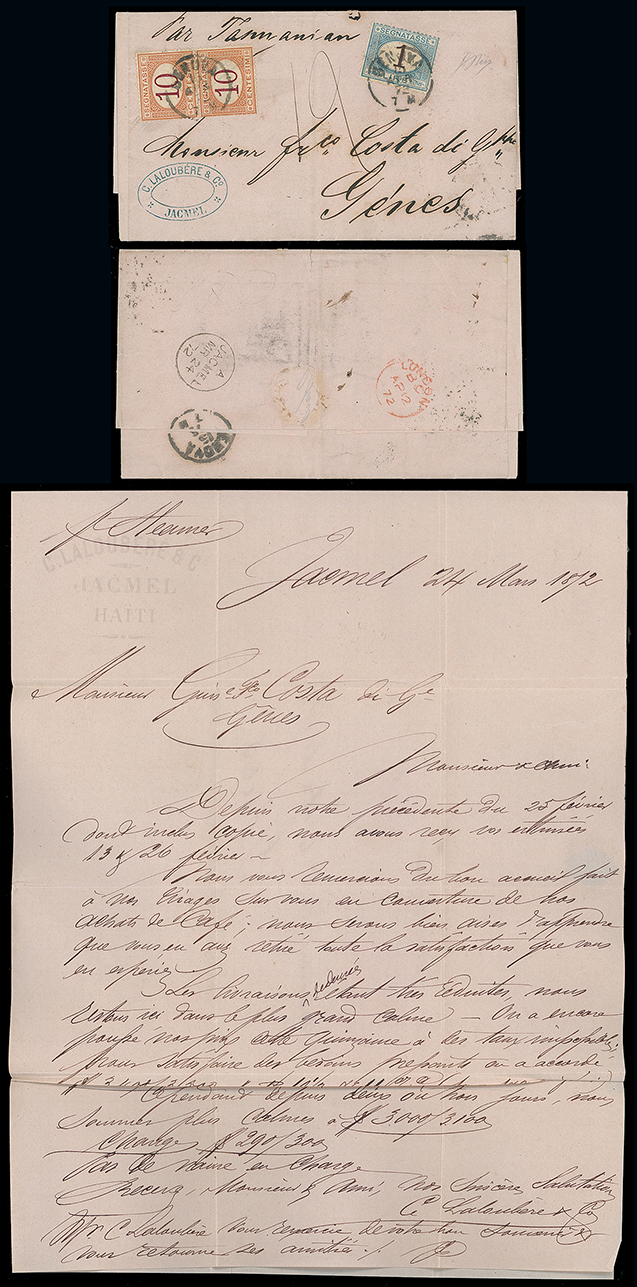 Par Tasmanian
SEGNATASSE
10
CENTESIMI
SEGNATASSE
10
CENTESIMI
SEGNATASSE
1
GENOVA
72
7 M
12
Monsieur fco Costa di Gme
Gênes
C. LALOUBÈRE & Co
JACMEL
JACMEL
MR 24
72
LONDON
AP 12
72
GENOVA
p Steamer
C. LALOUBÈRE & C
JACMEL
HAÏTI
Jacmel 24 Mars 1872
Monsieur Giuse fco Costa di Ge
Gênes
Monsieur & ami
Depuis notre précédente du 25 février
dont inclus copie, nous avons reçu vos estimées
13 & 26 février –
Nous vous remercions du bon accueil fait
à nos tirages sur vous en couverture de nos
achats de Café; nous serons bien aises d'apprendre
que vous en avez retiré toute la satisfaction que vous
en espériez
Les livraisons étant très réduites, nous
restons ici dans le plus grand calme – On a encore
nos prix cette quinzaine à des taux
pour satisfaire des besoins on a accordé
Cependant depuis deux ou trois jours, nous
sommes plus calmes à $ 3000/3100
Change $ 290/300
Pas de navire en charge
Recevez, Monsieur & Ami, nos sincères salutations
C. Laloubère & Co
Mr C Laloubère vous remercie de votre bon souvenir &
vous retourne ses amitiés